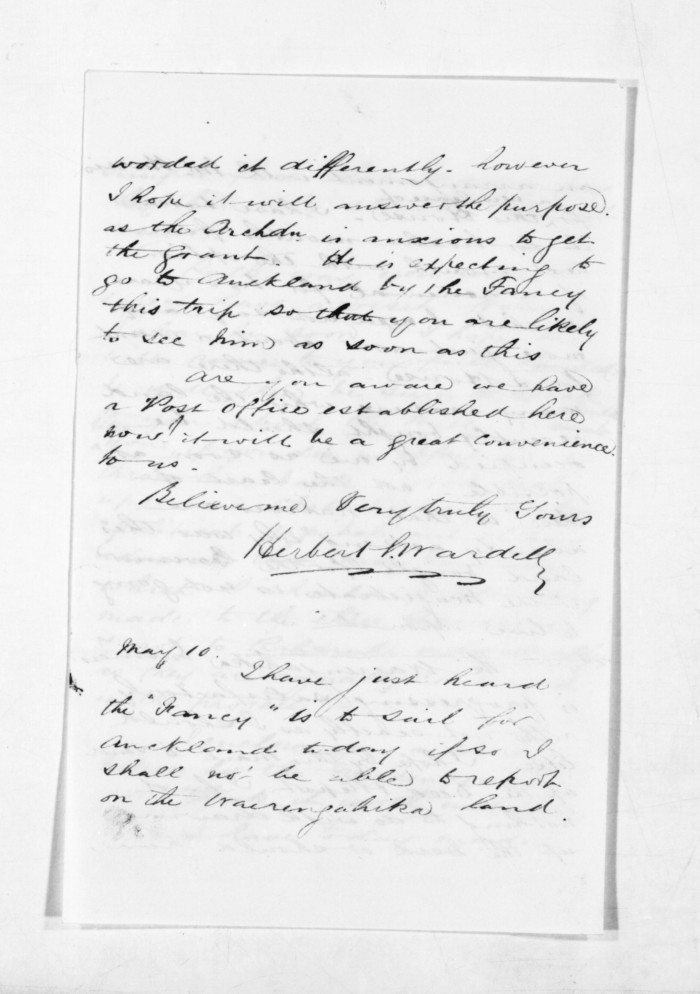 worded it differently. however
I hope it will answer the purpose.
as the Archdn. is anxious to get
the grant. He is expecting to
go to Auckland by the Fancy
this trip so that you are likely
to see him as soon as this
Are you aware we have
a Post office established here
now! it will be a great convenience.
to us.
Believe me Very truly Yours
Herbert S. Wardell
May 10.
I have just heard
the "Fancy" is to sail for
Auckland today if so I
shall not be able to report
on the Waerengahika land.